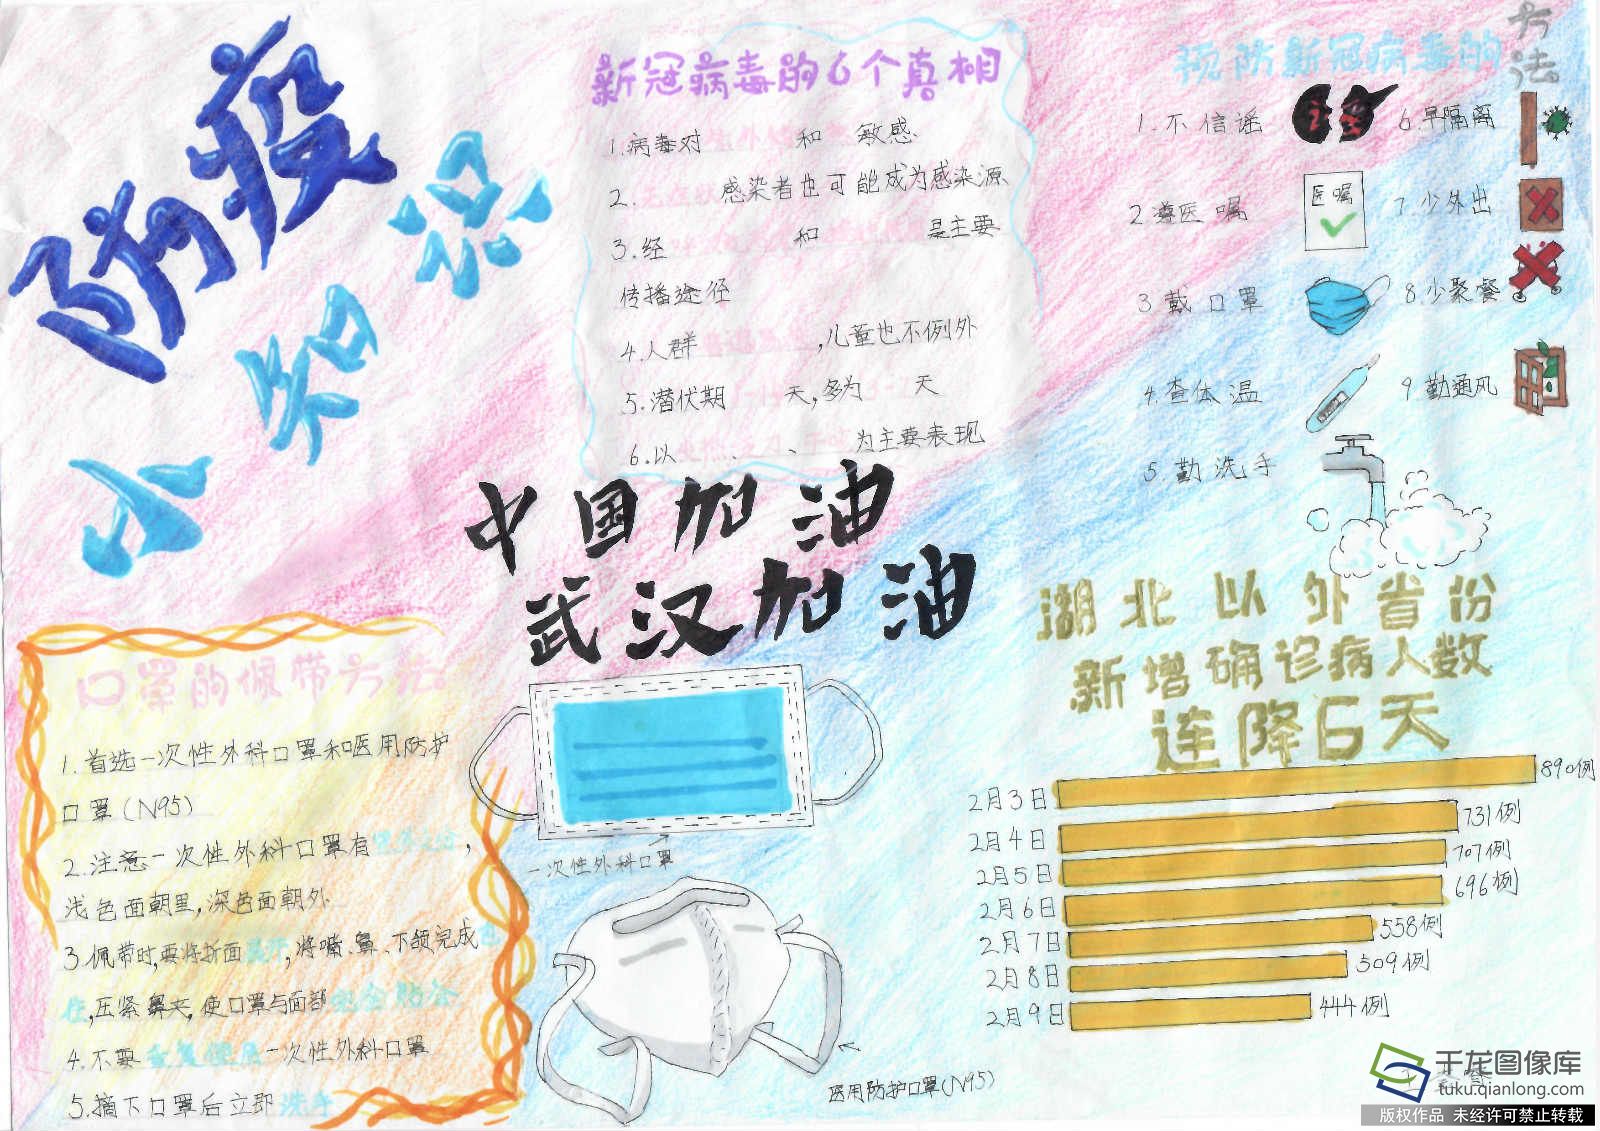 防疫
小知识
新冠病毒的6个真相
1.病毒对 和 敏感
2. 感染者也可能成为感染源
3.经 和 是主要
传播途径
4.人群 ,儿童也不例外
5.潜伏期 天,多为 天
6.以 、 、 为主要表现
预防新冠病毒的方法
1.不信谣
2遵医嘱
医嘱
3戴口罩
4.查体温
5.勤洗手
6.早隔离
7少外出
8少聚餐
9勤通风
中国加油
武汉加油
口罩的佩带方法
1.首选一次性外科口罩和医用防护
口罩(N95)
2.注意一次性外科口罩有 ,
浅色面朝里,深色面朝外
3佩带时,要将折面展开,将嘴、鼻、下颌完成
住,压紧鼻夹,使口罩与面部完全贴合
4.不要重复使用一次性外科口罩
5.摘下口罩后立即洗手
一次性外科口罩
医用防护口罩(N95)
湖北以外省份
新增确诊病人数
连降6天
2月3日 890例
2月4日 731例
2月5日 707例
2月6日 696例
2月7日 558例
2月8日 509例
2月9日 444例
千龙图像库
tuku.qianlong.com
版权作品 未经许可禁止转载